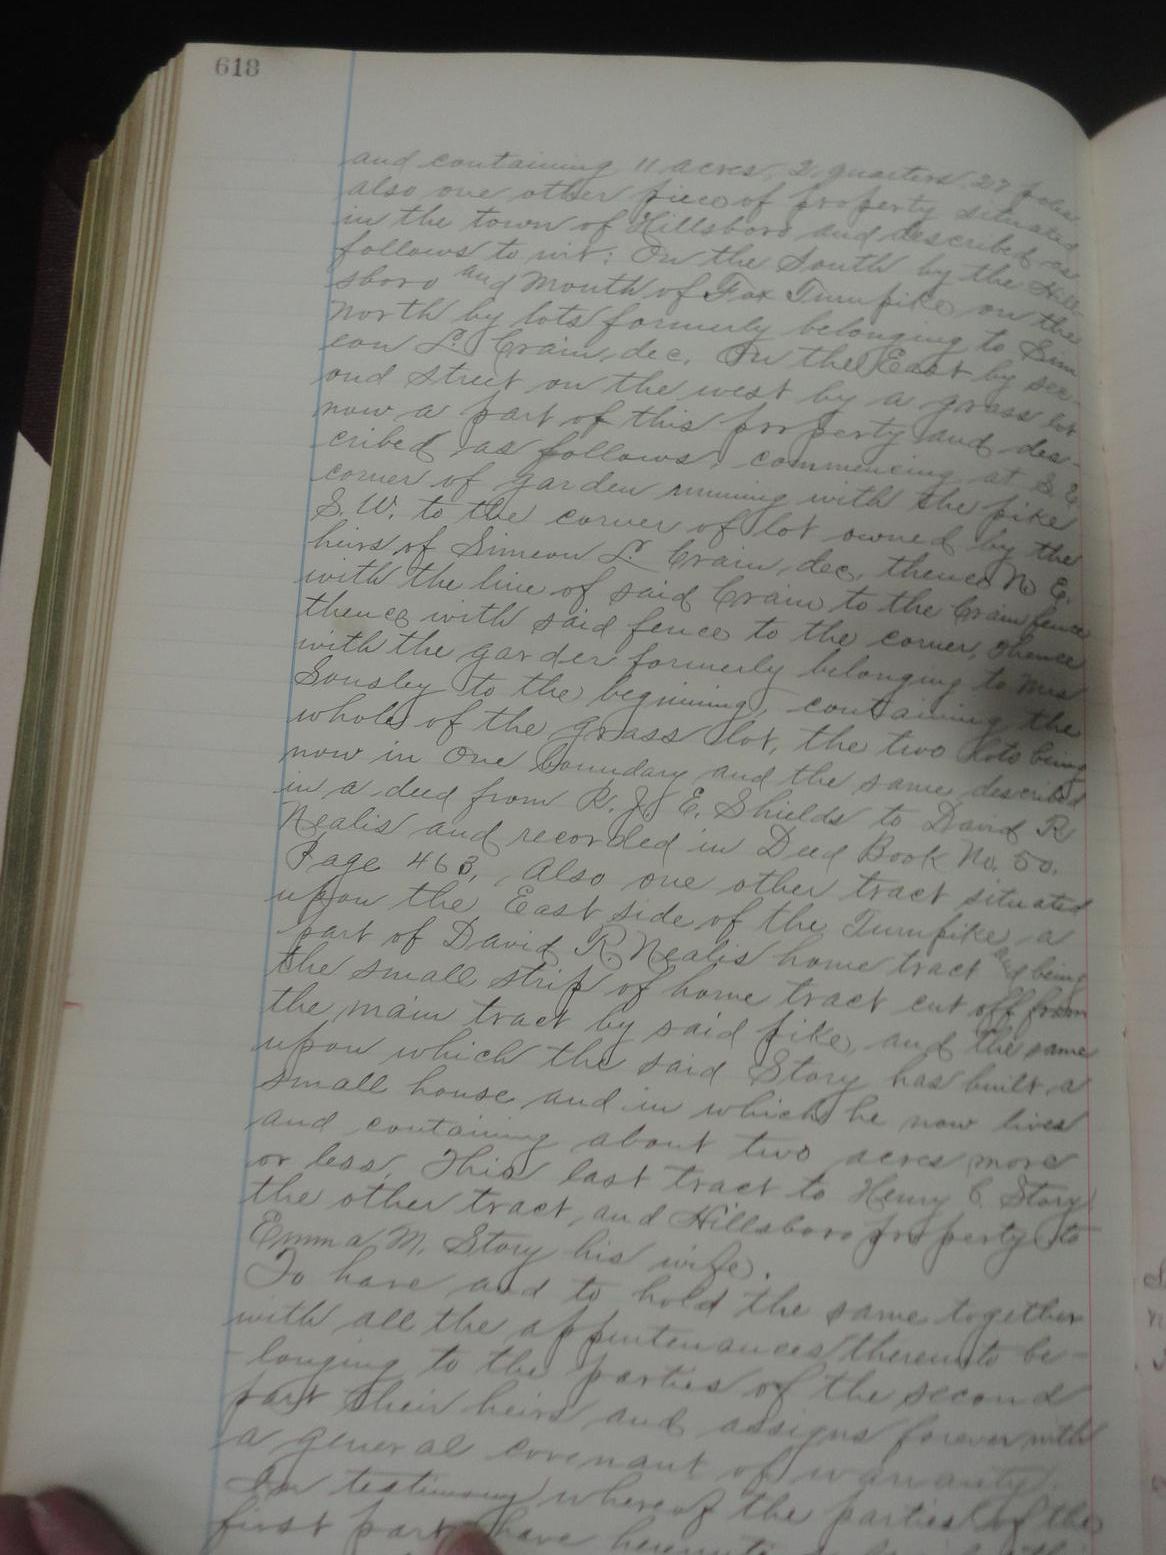 618
and containing 11 acres, 2 quarters 27 poles
also one other piece of property situated
in the town of Hillsboro and described as
follows to wit: On the South by the Hill-
sboro and Mouth of Fox Turnpike, on the
North by lots formerly belonging to Sim
eon L. Crain, dec. On the East by sec-
ond street on the west by a grass lot
now a part of this property and des-
cribed as follows, commencing at S. E.
corner of garden running with the pike
S. W. to the corner of lot owned by the
heirs of Simeon L. Crain, dec, thence N E.
with the line of said Crain to the Crain fence
thence with said fence to the corner, thence
with the garder formerly belonging to Mrs
Sousley to the begining, containing the
whole of the grass lot, the two lots being
now in one boundary and the same described
in a deed from R. J. E. Shields to David R
Nealis and recorded in Deed Book No. 50.
Page 463, Also one other tract situated
upon the East side of the Turnpike, a
part of David R. Nealis home tract and being
the small strip of home tract cut off from
the main tract by said pike, and the same
upon which the said Story has built a
small house and in which he now lives
and containing about two acres more
or less, This last tract to Henry C. Story
the other tract, and Hillsboro property to
Emma M. Story his wife.
To have and to hold the same together
with all the appurtenances thereunto be-
longing to the parties of the second
part their heirs and assigns forever with
a general covenant of warranty.
In testimony whereof the parties of the
first part have hereunto